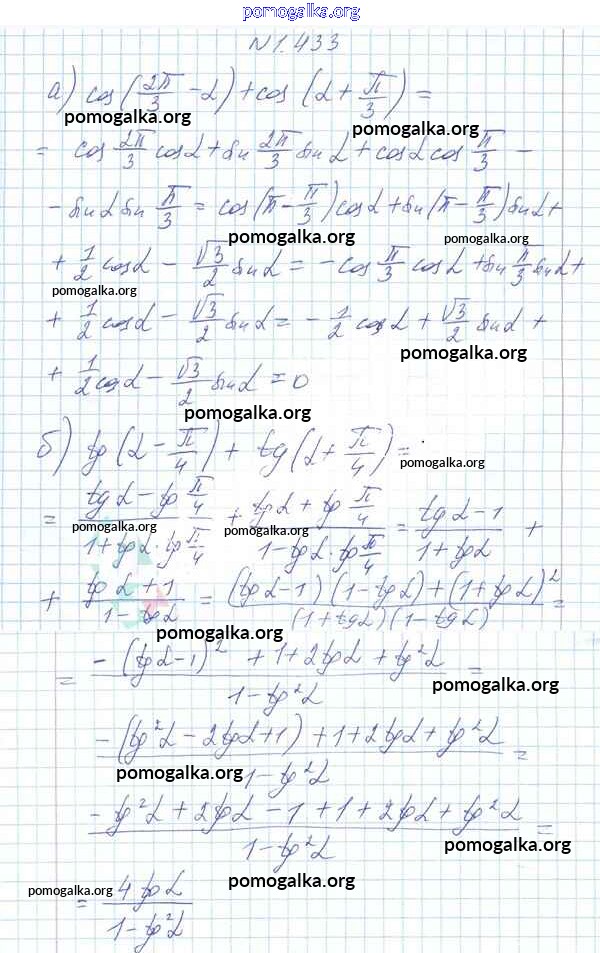 pomogalka.org
N 1.433
а) cos(2π/3 - α) + cos(α + π/3) =
pomogalka.org pomogalka.org
= cos 2π/3 cosα + sin 2π/3 sinα + cosα cos π/3 -
- sinα sin π/3 = cos(π - π/3) cosα + sin(π - π/3) sinα +
pomogalka.org pomogalka.org
+ 1/2 cosα - √3/2 sinα = - cos π/3 cosα + sin π/3 sinα +
pomogalka.org
+ 1/2 cosα - √3/2 sinα = - 1/2 cosα + √3/2 sinα +
pomogalka.org
+ 1/2 cosα - √3/2 sinα = 0
pomogalka.org
б) tg(α - π/4) + tg(α + π/4) =
pomogalka.org
= (tgα - tg π/4)/(1 + tgα · tg π/4) + (tgα + tg π/4)/(1 - tgα · tg π/4) = (tgα - 1)/(1 + tgα) +
pomogalka.org pomogalka.org
+ (tgα + 1)/(1 - tgα) = ((tgα - 1)(1 - tgα) + (1 + tgα)²)/((1 + tgα)(1 - tgα)) =
pomogalka.org
= (-(tgα - 1)² + 1 + 2tgα + tg²α)/(1 - tg²α) =
pomogalka.org
(-(tg²α - 2tgα + 1) + 1 + 2tgα + tg²α)/(1 - tg²α) =
pomogalka.org
(-tg²α + 2tgα - 1 + 1 + 2tgα + tg²α)/(1 - tg²α) =
pomogalka.org
= 4tgα/(1 - tg²α)
pomogalka.org pomogalka.org